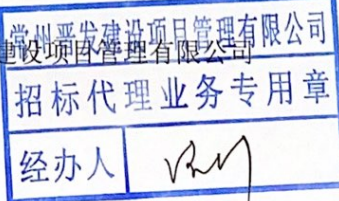 常州晋发建设项目管理有限公司
建设项目管理有限公司
招标代理业务专用章
经办人